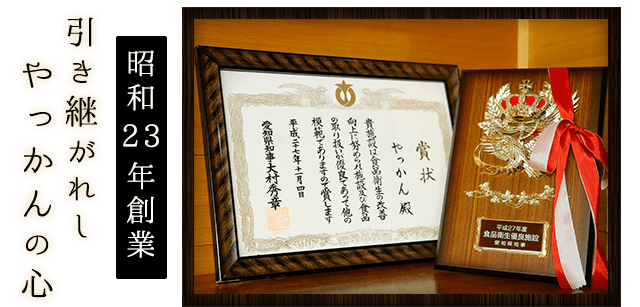 引き継がれし
やっかんの心
昭和23年創業
賞状
やっかん 殿
貴施設は食品衛生の改善
向上に努められ施設及び食品
の取り扱いが優良であって他の
模範でありますので賞します
平成二十七年十一月四日
愛知県知事 大村秀章
平成27年度
食品衛生優良施設
愛知県知事